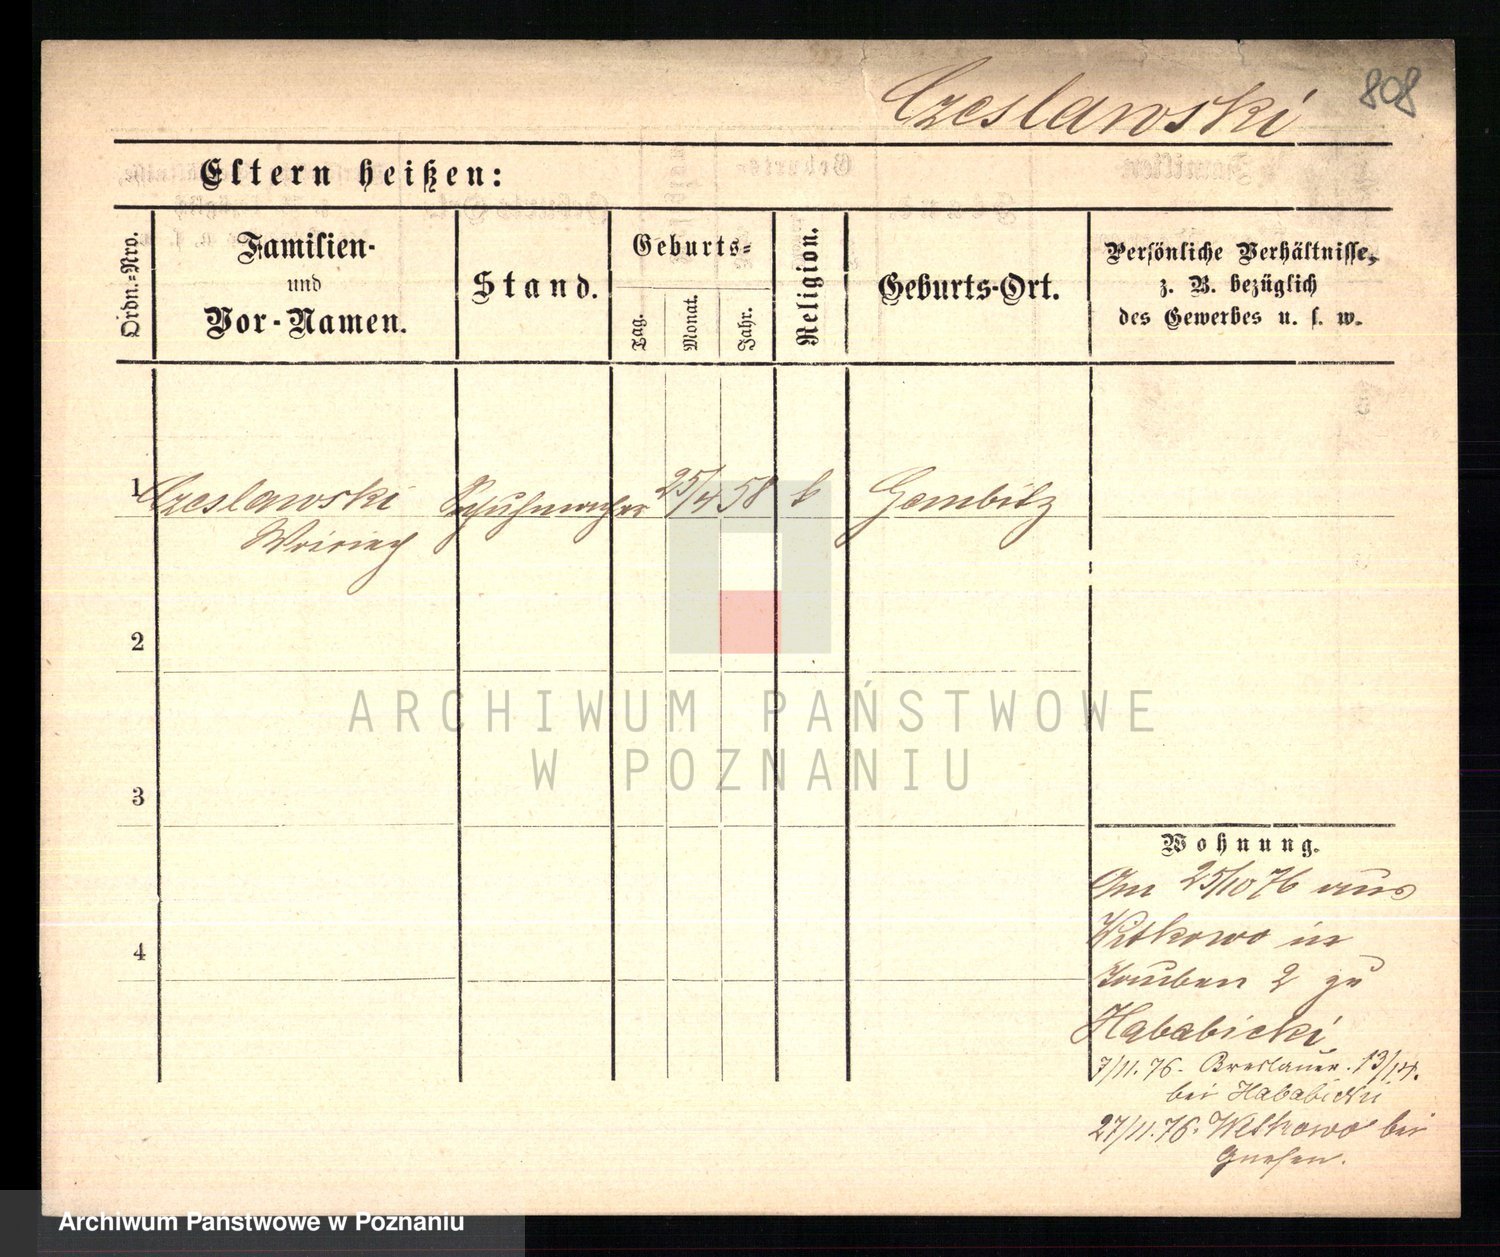 Czeslawski 808
Eltern heißen:
Ordn.-Nro.
Familien-
und
Vor-Namen.
Stand.
Geburts-
Tag.
Monat.
Jahr.
Religion.
Geburts-Ort.
Persönliche Verhältnisse,
z. B. bezüglich
des Gewerbes u. s. w.
1 Czeslawski Schuhmacher 25/4 58 k Gembitz
2
3
4
Wohnung.
Am 25/10 76 aus
Witkowo in
Tauben 2 zu
Hababicki
7/11. 76. Breslauer. 13/14.
bei Hababicki
27/11. 76. Witkowo bei
Gnesen.
ARCHIWUM PAŃSTWOWE
W POZNANIU
Archiwum Państwowe w Poznaniu